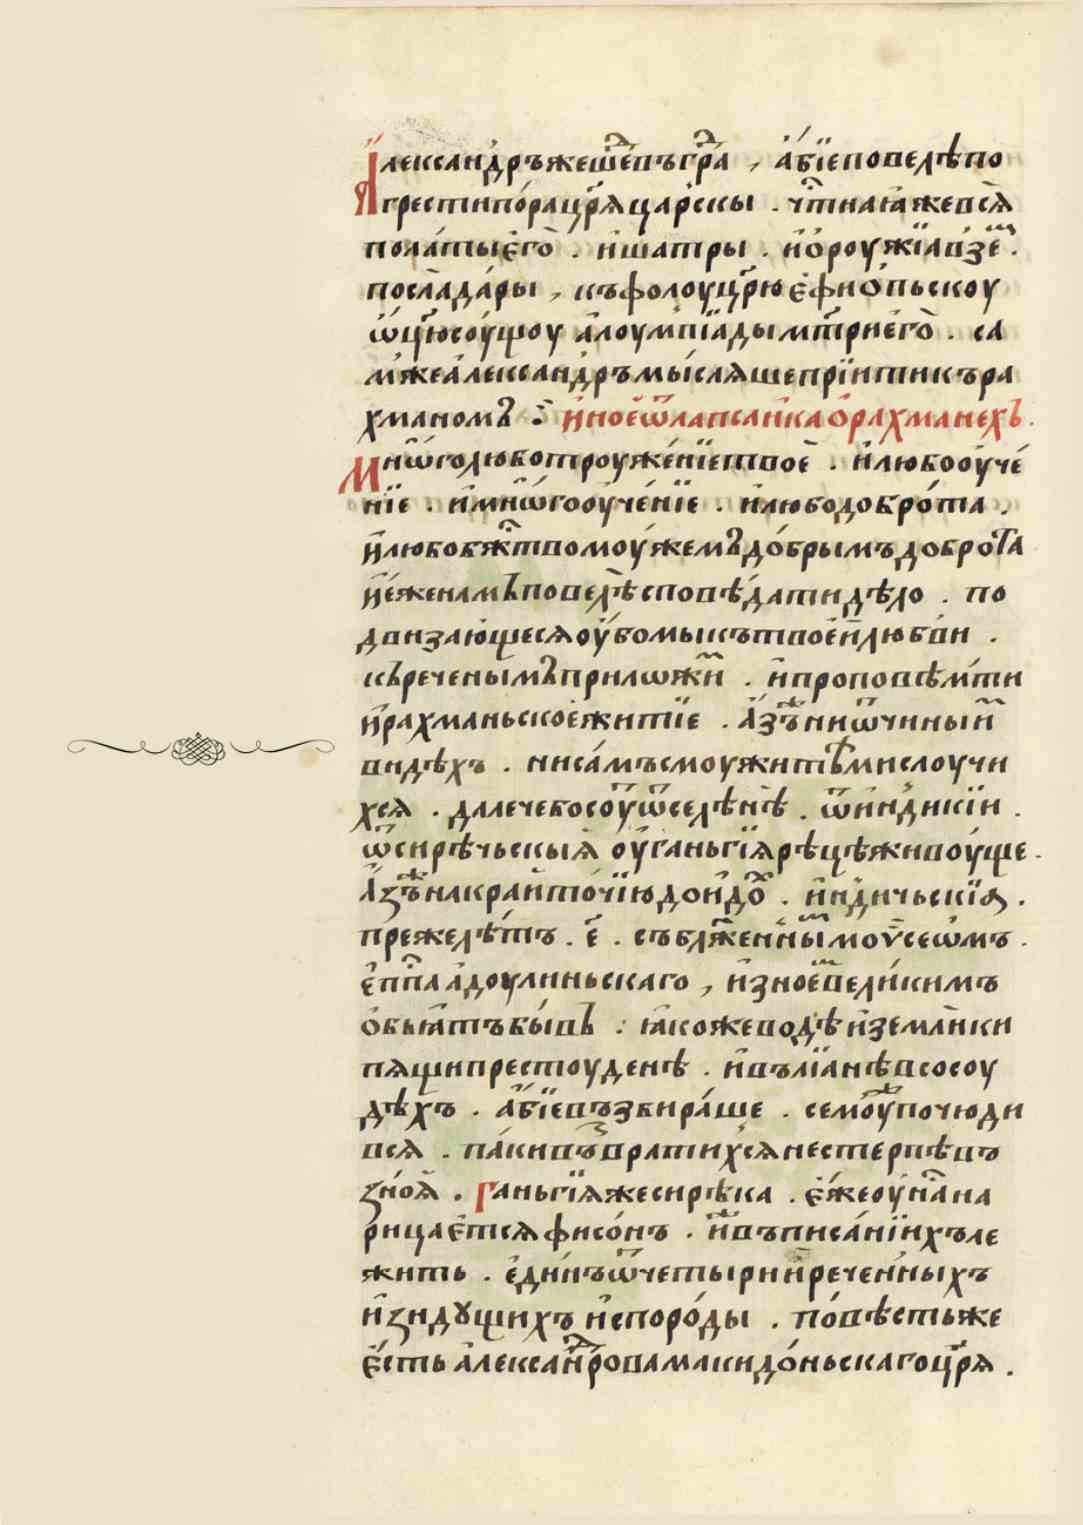 Александръ же шедъ въ гра, абїе повелѣ по
грести пора царѧ царскы. чтнаѧ ꙗже всѧ
полаты его. и шатры. и ороужїа взем.
посла дары, къ фолоу царю ефиопьскоу
ѿцю соущоу алоумпїады мтри его. са
м же александръ мыслѧше прїити къ ра
хманом. иное ѿ лапсаика о рахманехъ.
Мнѡголюботроуженїе твое. и любооуче
нїе. и мнѡгооученїе. и любодоброта.
и любобжтво моужемъ добрымъ доброта
иеже намъ повелѣ споведати дѣло. по
двизающесѧ оубо мы къ твоей любви.
къ реченымъ приложи. и проповѣмти
и рахманьское житїе. азъ ни ѿчины и
видѣхъ. ни самъ с моужитьми слоучи
хсѧ. далече бо соу ѿселѣнѣ. ѿ индикїи.
ѿ сирѣчьскыѧ оу ганьгїѧ рѣцѣ живоуще.
Азъ на краи точїю доидо. индичьскїѧ.
преже лѣтъ. е. съ блженным моѵсеѡмъ.
еппа адоулиньскаго, и зноем великимъ
обьꙗтъ бывъ: ꙗкоже водѣ и земли ки
пѧщи престоуденѣ. и въ лїанѣ в сосоу
дѣхъ. абїе възбираше. семоу почюди
всѧ. паки възвратихсѧ не стерпѣвъ
зноѧ. Ганьгїѧ же си рѣка. еже оу на на
рицаетсѧ фисонъ. иже въ писанїихъ ле
жить. единъ ѿ четыри и реченныхъ
изидꙋщихъ ис породы. повѣсть же
есть александрова макидоньскаго царѧ.